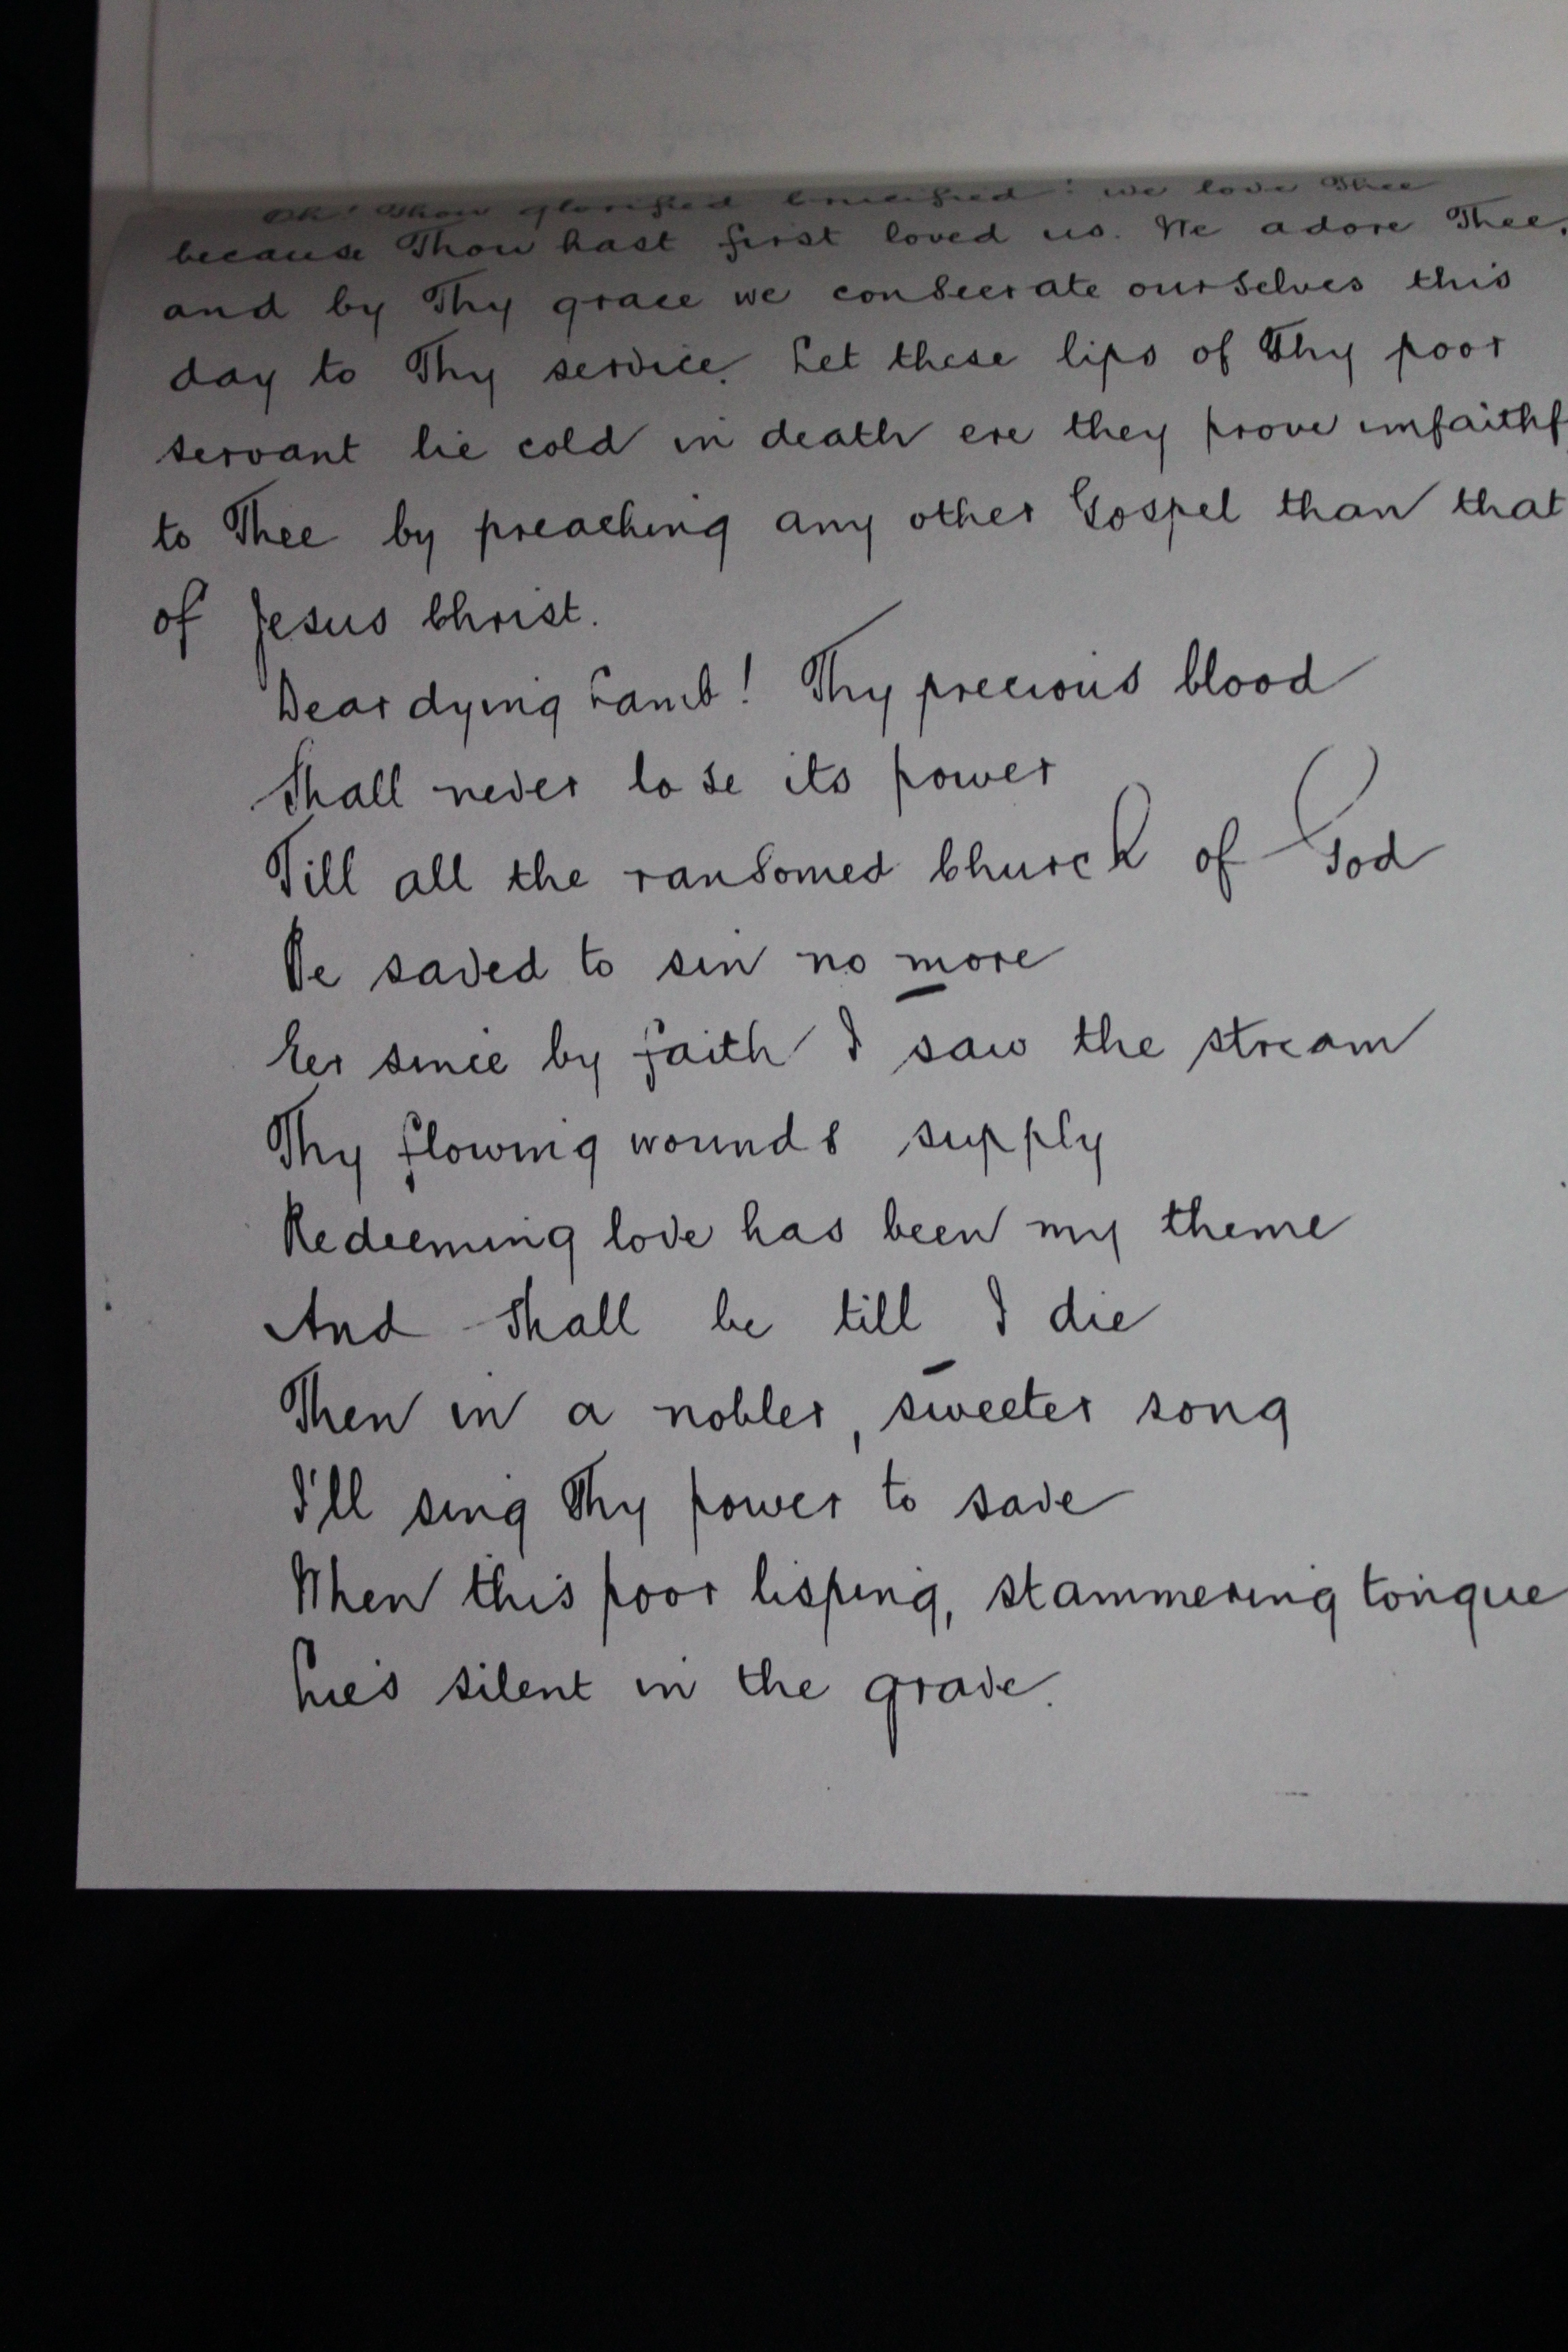 Oh! Thou glorified Crucified! we love Thee
because Thou hast first loved us. We adore Thee,
and by Thy grace we consecrate ourselves this
day to Thy service. Let these lips of Thy poor
servant lie cold in death ere they prove unfaithf
to Thee by preaching any other Gospel than that
of Jesus Christ.
Dear dying Lamb! Thy precious blood
Shall never lose its power
Till all the ransomed Church of God
Be saved to sin no more
Eer since by faith I saw the stream
Thy flowing wounds supply
Redeeming love has been my theme
And shall be till I die
Then in a nobler, sweeter song
I'll sing Thy power to save
When this poor lisping, stammering tongue
Lies silent in the grave.